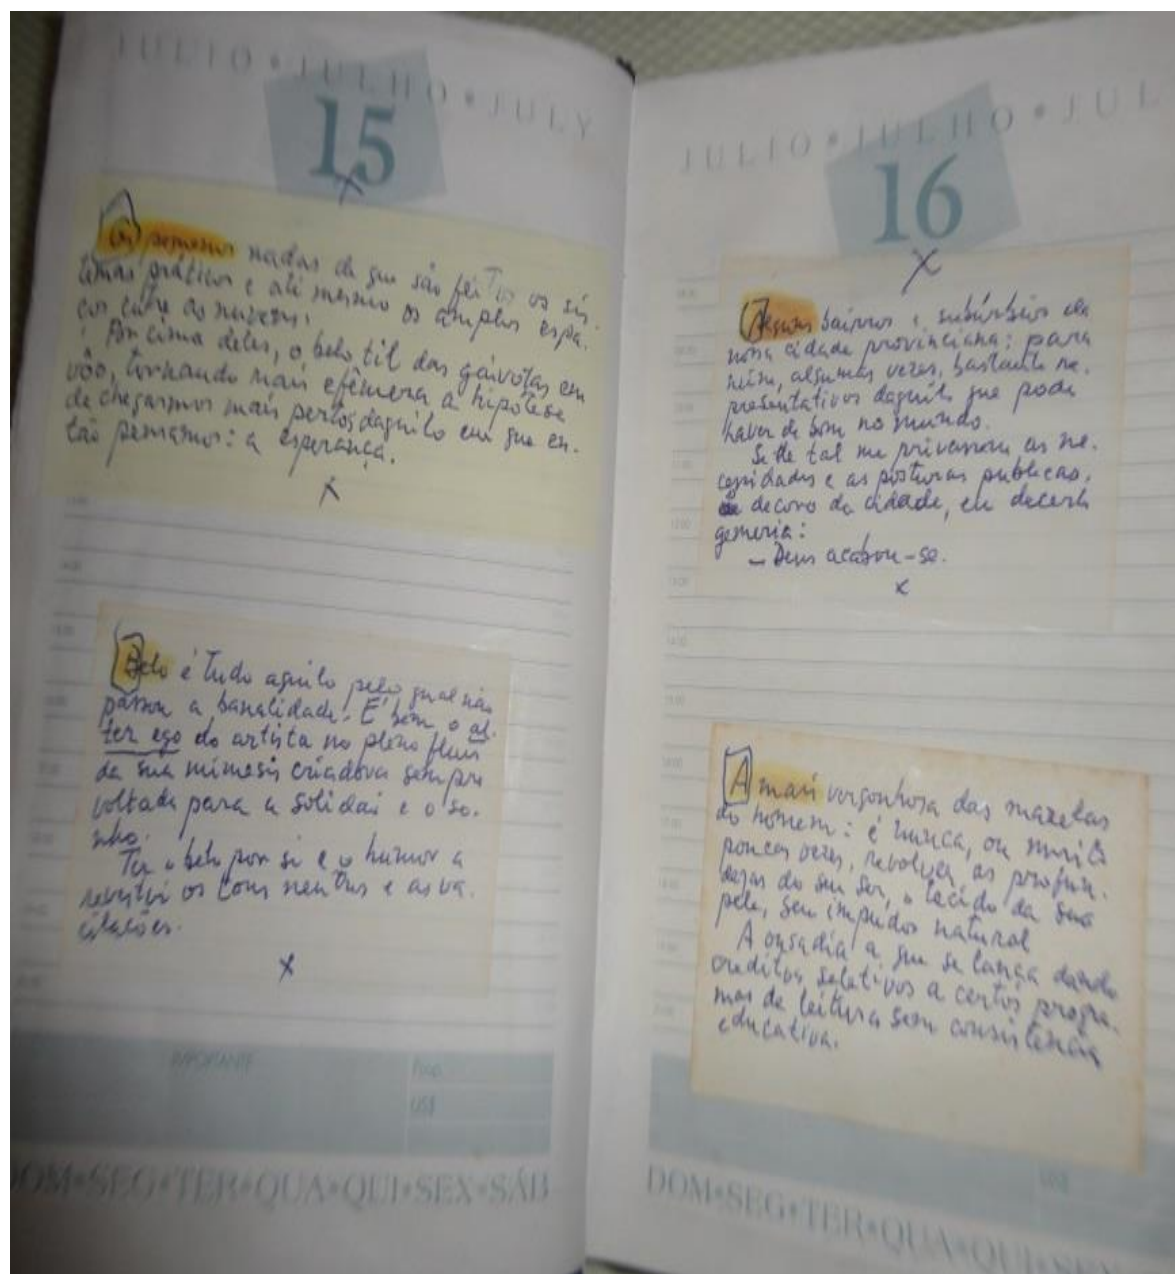 JULIO • JULHO • JULY
15
Os pequenos nadas de que são feitos os sis-
temas práticos e até mesmo os amplos espa-
ços entre as nuvens.
Por cima deles, o belo til das gaivotas em
vôo, tornando mais efêmera a hipótese
de chegarmos mais pertos daquilo em que en-
tão pensamos: a esperança.
x
Belo é tudo aquilo pelo qual não
passou a banalidade. É bem o al-
ter ego do artista no pleno
da sua mimesis criadora sempre
voltada para a solidão e o so-
nho.
Ter o belo por si e o humor a
revestir os e as va-
cilações.
x
IMPORTANTE
US$
DOM•SEG•TER•QUA•QUI•SEX•SÁB
JULIO • JULHO • JUL
16
x
Alguns bairros e subúrbios da
nossa cidade provinciana: para
mim, algumas vezes, bastante re-
presentativos daquilo que pode
haver de bom no mundo.
Se de tal me privassem as ne-
cessidades e as posturas publicas,
decoro da cidade, eu decerto
gemeria:
— Deus acabou-se.
x
A mais vergonhosa das mazelas
do homem: é nunca, ou muito
poucas vezes, revolver as profun-
dezas do seu ser, o tecido da sua
pele, seu impudor natural
A ousadia a que se lança dando
creditos seletivos a certos progra-
mas de leitura sem consistência
educativa.
US$
DOM•SEG•TER•QUA•QUI•SEX